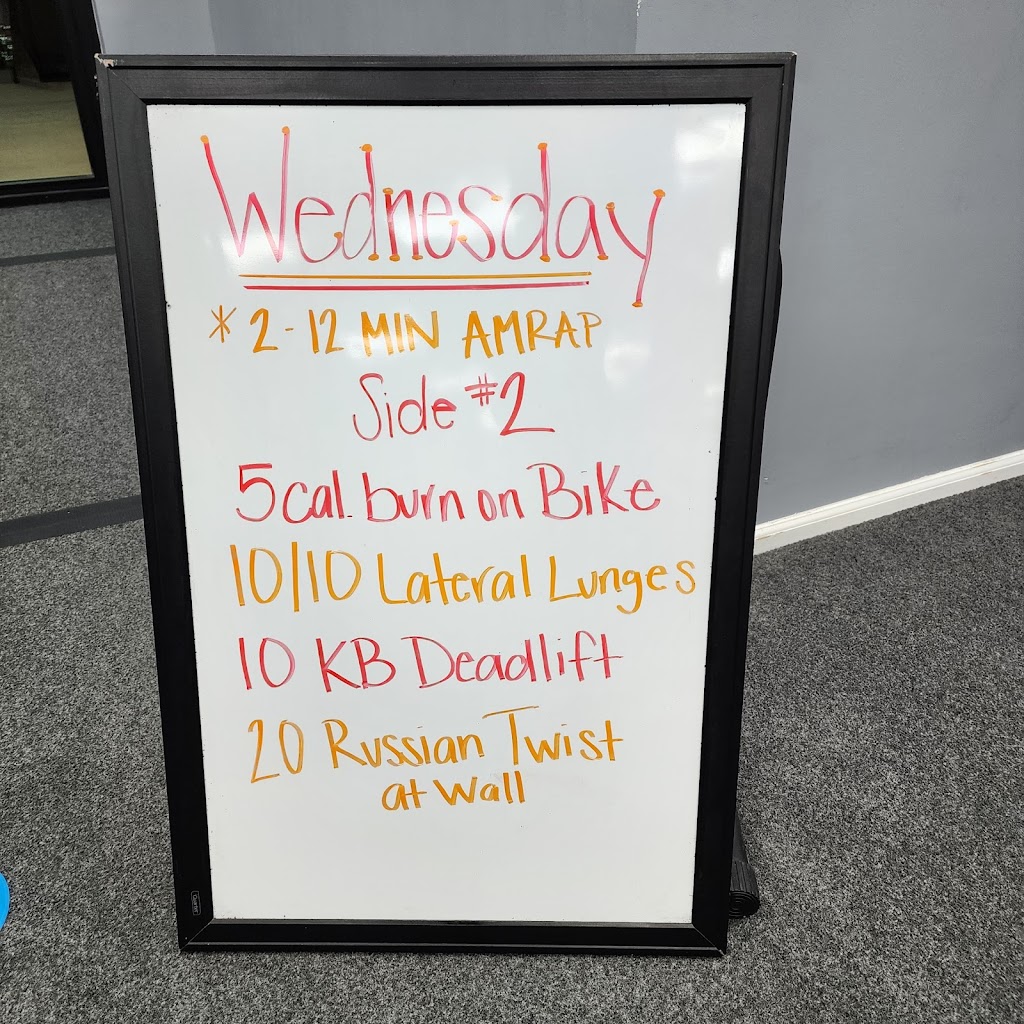 Wednesday
* 2-12 MIN AMRAP
Side #2
5 cal. burn on Bike
10/10 Lateral Lunges
10 KB Deadlift
20 Russian Twist
at Wall